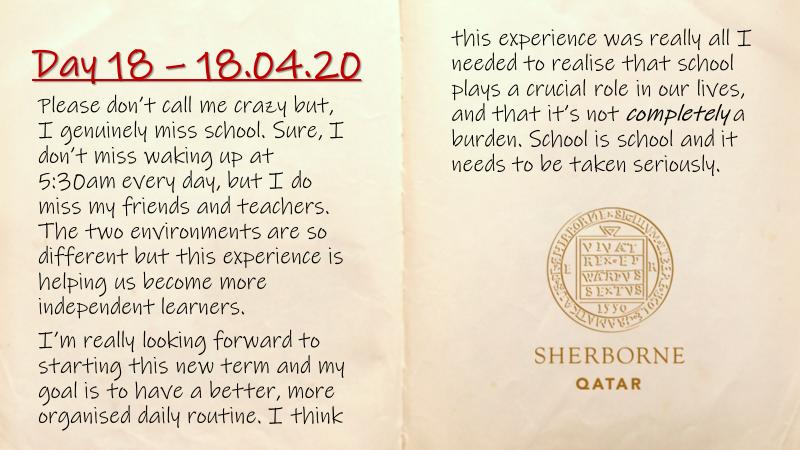 Day 18 – 18.04.20
Please don't call me crazy but,
I genuinely miss school. Sure, I
don't miss waking up at
5:30am every day, but I do
miss my friends and teachers.
The two environments are so
different but this experience is
helping us become more
independent learners.
I'm really looking forward to
starting this new term and my
goal is to have a better, more
organised daily routine. I think
this experience was really all I
needed to realise that school
plays a crucial role in our lives,
and that it's not completely a
burden. School is school and it
needs to be taken seriously.
VIVAT
REX·EP
WARDVS
SEXTVS
1550
E R
SHERBORNE
QATAR